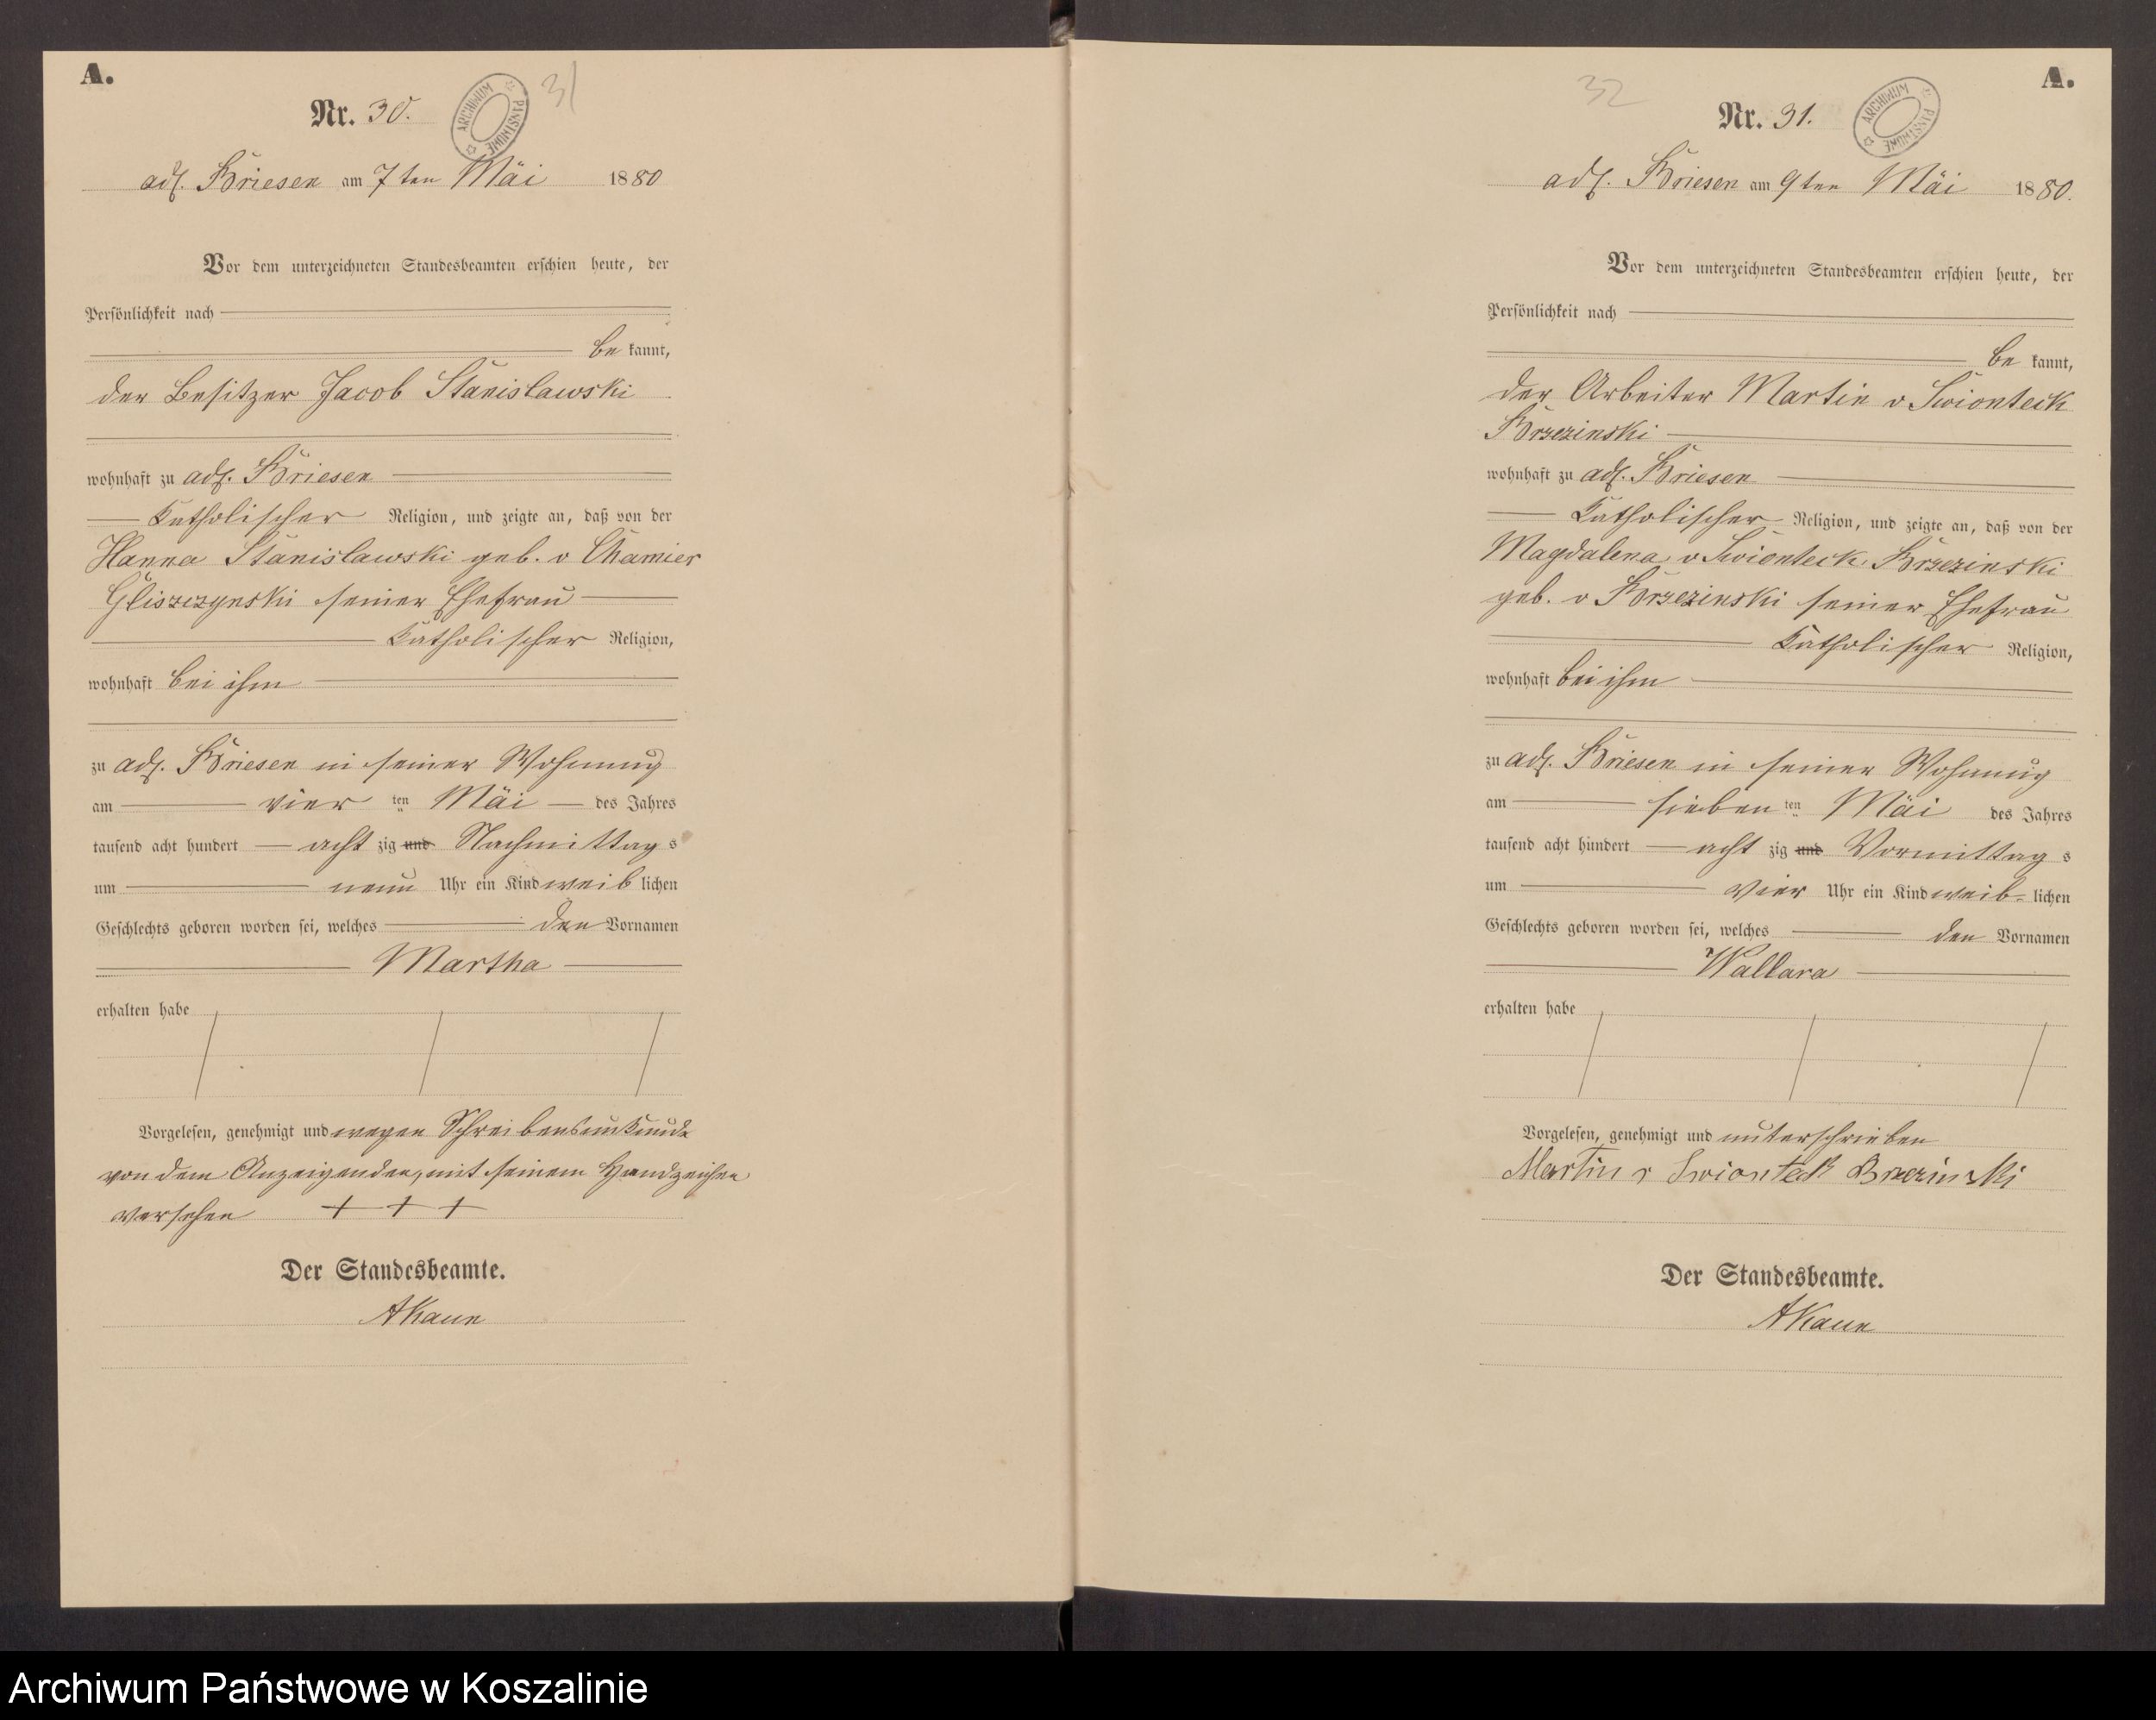 A.
Nr. 30.
31
ARCHIWUM PAŃSTWOWE
adl. Briesen am 7ten Mai 1880
Vor dem unterzeichneten Standesbeamten erschien heute, der
Persönlichkeit nach
be kannt,
der Besitzer Jacob Stanislawski
wohnhaft zu adl. Briesen
katholischer Religion, und zeigte an, daß von der
Hanna Stanislawski geb. v Chamier
Gliszczynski seiner Ehefrau
katholischer Religion,
wohnhaft bei ihm
zu adl. Briesen in seiner Wohnung
am vier ten Mai des Jahres
tausend acht hundert acht zig und Nachmittag s
um neun Uhr ein Kind weib lichen
Geschlechts geboren worden sei, welches den Vornamen
Martha
erhalten habe
Vorgelesen, genehmigt und wegen Schreibensunkunde
von dem Anzeigenden, mit seinem Handzeichen
versehen + + +
Der Standesbeamte.
AKaun
A.
32
Nr. 31.
ARCHIWUM PAŃSTWOWE
adl. Briesen am 9ten Mai 1880.
Vor dem unterzeichneten Standesbeamten erschien heute, der
Persönlichkeit nach
be kannt,
der Arbeiter Martin v Swionteck
Brzezinski
wohnhaft zu adl. Briesen
katholischer Religion, und zeigte an, daß von der
Magdalena v Swionteck Brzezinski
geb. v Brzezinski seiner Ehefrau
katholischer Religion,
wohnhaft bei ihm
zu adl. Briesen in seiner Wohnung
am sieben ten Mai des Jahres
tausend acht hundert acht zig und Vormittag s
um vier Uhr ein Kind weib- lichen
Geschlechts geboren worden sei, welches den Vornamen
Wallara
erhalten habe
Vorgelesen, genehmigt und unterschrieben
Martin v Swionteck Brzezinski
Der Standesbeamte.
AKaun
Archiwum Państwowe w Koszalinie